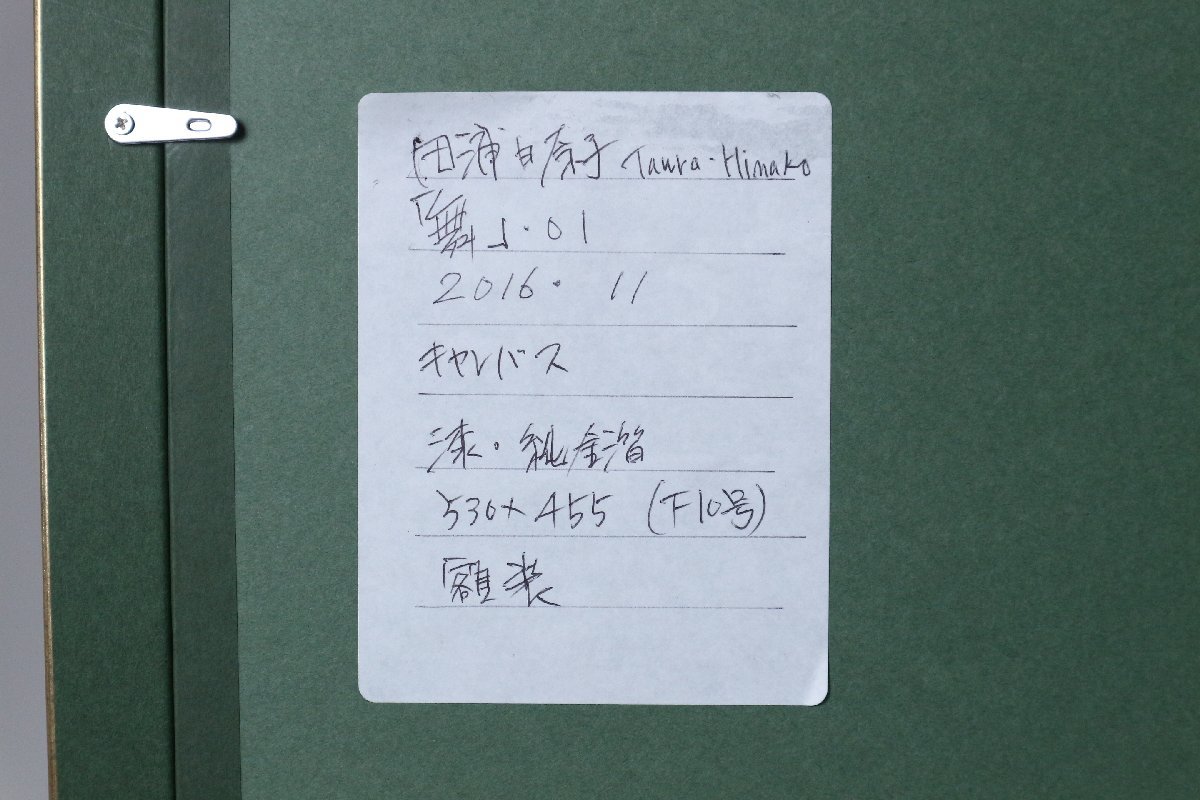 田浦日奈子 Taura・Himako
「舞」・01
2016・ 11
キャンバス
漆・純金箔
530×455 (F10号)
額装